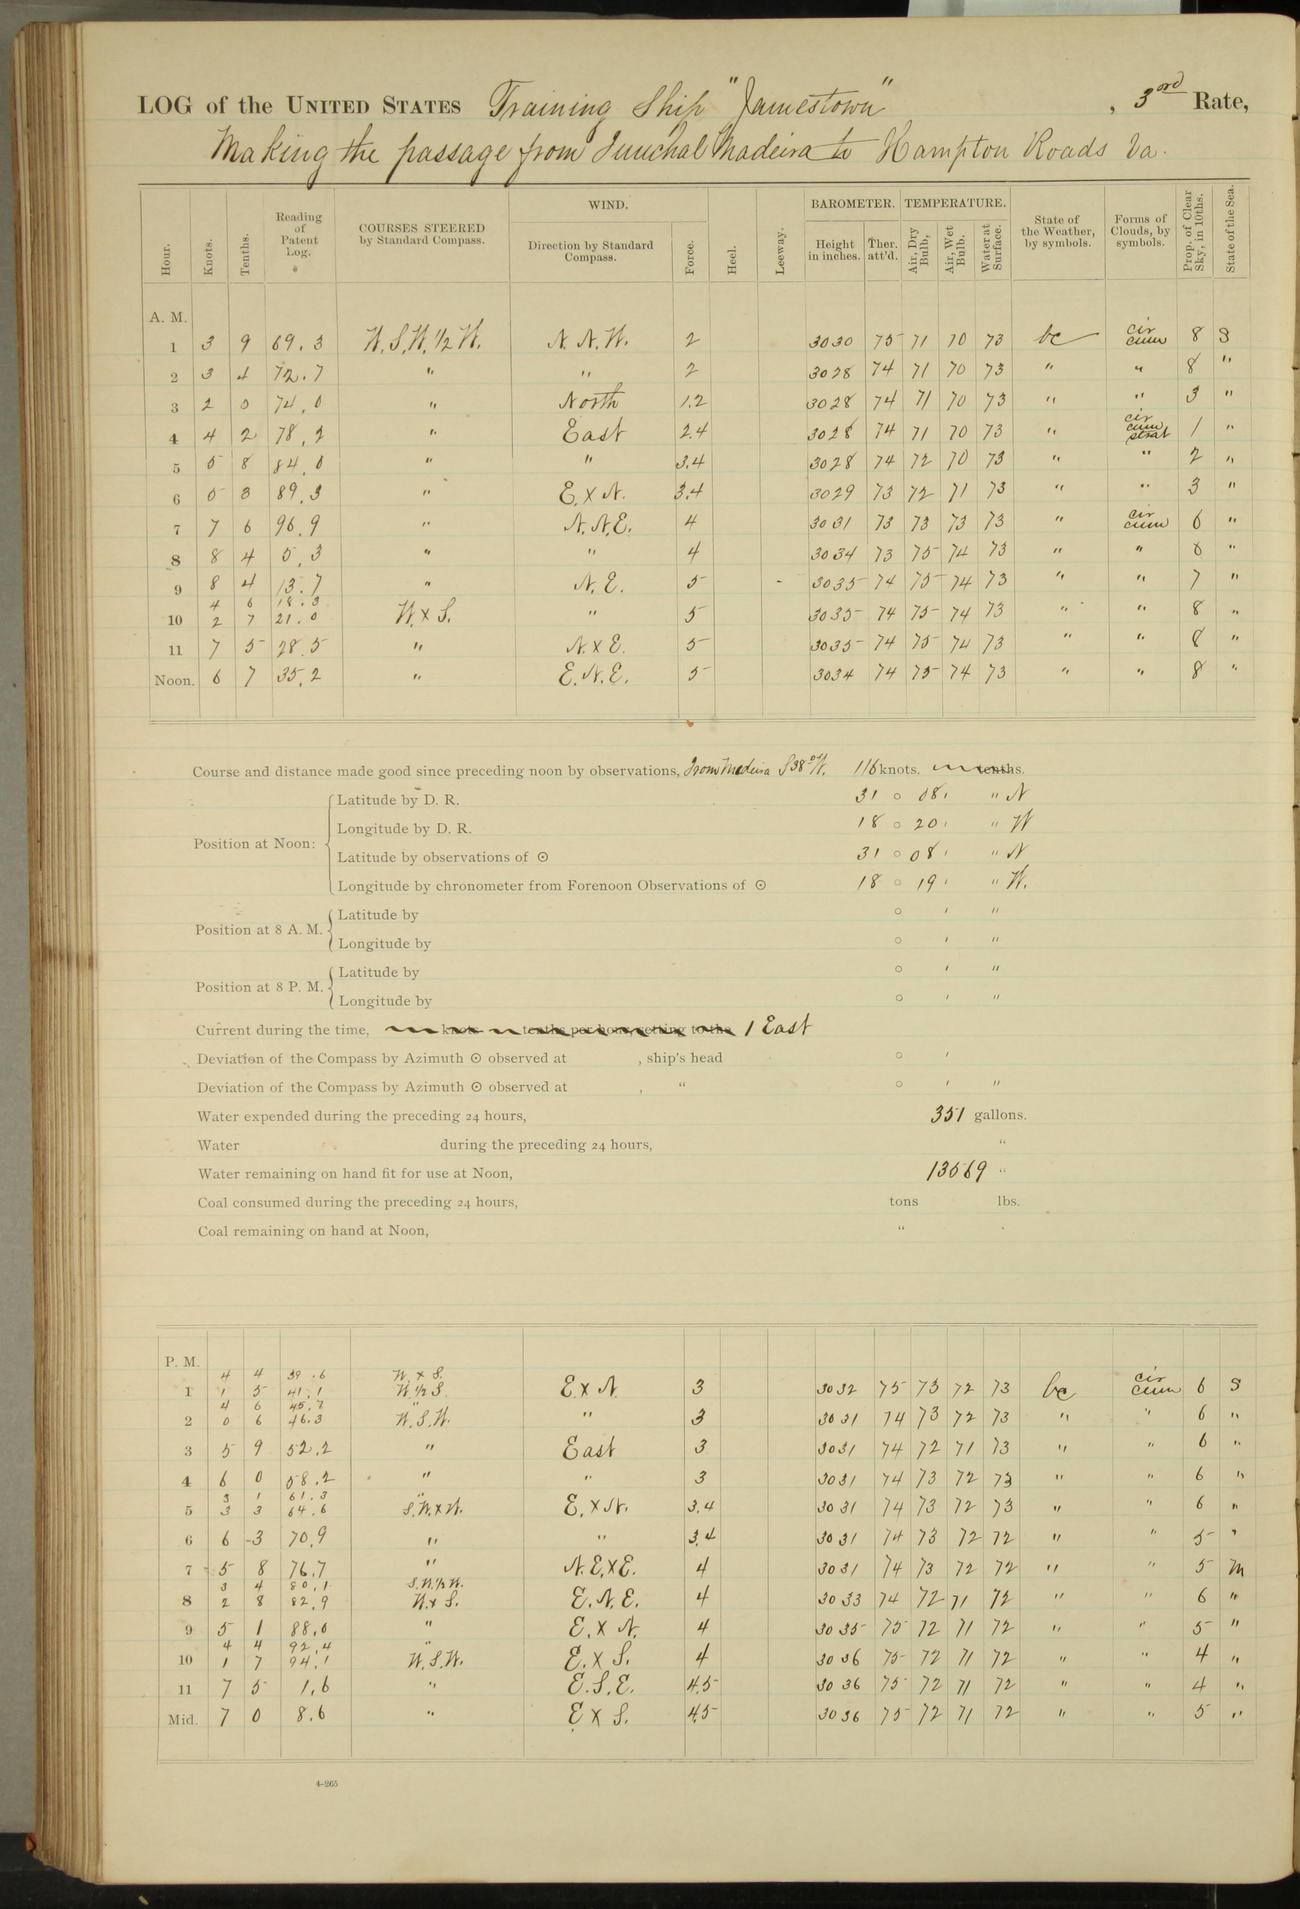 LOG of the UNITED STATES Training Ship "Jamestown", 3rd Rate,
Making the passage from Funchal Madeira to Hampton Roads Va.
Hour. Knots. Tenths. Reading of Patent Log. COURSES STEERED by Standard Compass. WIND. Direction by Standard Compass. Force. Heel. Leeway. BAROMETER. Height in inches. Ther. att'd. TEMPERATURE. Air, Dry Bulb, Air, Wet Bulb. Water at Surface. State of the Weather, by symbols. Forms of Clouds, by symbols. Prop. of Clear Sky, in 10ths. State of the Sea.
A. M.
1 3 9 69.3 W.S.W. 1/2 W. N.N.W. 2 3030 75 71 70 73 bc cir cum 8 S
2 3 4 72.7 " " 2 3028 74 71 70 73 " " 8 "
3 2 0 74.0 " North 1.2 3028 74 71 70 73 " " 3 "
4 4 2 78.2 " East 2.4 3028 74 71 70 73 " cir cum strat 1 "
5 5 8 84.0 " " 3.4 3028 74 72 70 73 " " 2 "
6 5 3 89.3 " E. x N. 3.4 3029 73 72 71 73 " " 3 "
7 7 6 96.9 " N.N.E. 4 3031 73 73 73 73 " cir cum 6 "
8 8 4 5.3 " " 4 3034 73 75 74 73 " " 6 "
9 8 4 13.7 " N.E. 5 3035 74 75 74 73 " " 7 "
4 6 18.3
10 2 7 21.0 W. x S. " 5 3035 74 75 74 73 " " 8 "
11 7 5 28.5 " N. x E. 5 3035 74 75 74 73 " " 8 "
Noon. 6 7 35.2 " E.N.E. 5 3034 74 75 74 73 " " 8 "
Course and distance made good since preceding noon by observations, From Madeira S 38° W. 116 knots. tenths.
Position at Noon:
Latitude by D. R. 31 ° 08 ' " N
Longitude by D. R. 18 ° 20 ' " W
Latitude by observations of ⊙ 31 ° 08 ' " N
Longitude by chronometer from Forenoon Observations of ⊙ 18 ° 19 ' " W.
Position at 8 A. M.
Latitude by ° ' "
Longitude by ° ' "
Position at 8 P. M.
Latitude by ° ' "
Longitude by ° ' "
Current during the time, knots tenths per hour, setting to the 1 East
Deviation of the Compass by Azimuth ⊙ observed at , ship's head ° '
Deviation of the Compass by Azimuth ⊙ observed at , " ° ' "
Water expended during the preceding 24 hours, 351 gallons.
Water during the preceding 24 hours, "
Water remaining on hand fit for use at Noon, 13569 "
Coal consumed during the preceding 24 hours, tons lbs.
Coal remaining on hand at Noon, "
P. M.
4 4 39.6 W. x S.
1 1 5 41.1 W. 1/2 S. E x N. 3 3032 75 73 72 73 bc cir cum 6 S
4 6 45.7 "
2 0 6 46.3 W.S.W. " 3 3031 74 73 72 73 " " 6 "
3 5 9 52.2 " East 3 3031 74 72 71 73 " " 6 "
4 6 0 58.2 " " 3 3031 74 73 72 73 " " 6 "
3 1 61.3 "
5 3 3 64.6 S.W. x W. E. x N. 3.4 3031 74 73 72 73 " " 6 "
6 6 3 70.9 " " 3.4 3031 74 73 72 72 " " 5 "
7 5 8 76.7 " N.E. x E. 4 3031 74 73 72 72 " " 5 M
3 4 80.1 S.W. 1/2 W.
8 2 8 82.9 W. x S. E.N.E. 4 3033 74 72 71 72 " " 6 "
9 5 1 88.0 " E. x N. 4 3035 75 72 71 72 " " 5 "
4 4 92.4 "
10 1 7 94.1 W.S.W. E. x S. 4 3036 75 72 71 72 " " 4 "
11 7 5 1.6 " E.S.E. 4.5 3036 75 72 71 72 " " 4 "
Mid. 7 0 8.6 " E x S. 4.5 3036 75 72 71 72 " " 5 "
4-265